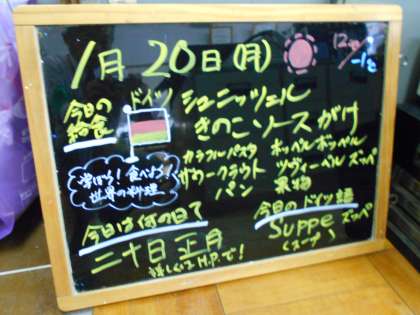 1月20日(月)
12℃/-1℃
今日の給食
ドイツ
シュニッツェル
きのこソースがけ
カラフルパスタ
ホッペルポッペル
ザワークラウト
ツヴィーベルズッペ
パン
果物
学ぼう!食べよう
世界の料理
今日は何の日?
二十日正月
詳しくはH.P.で!
今日のドイツ語
Suppe ズッペ
(スープ)